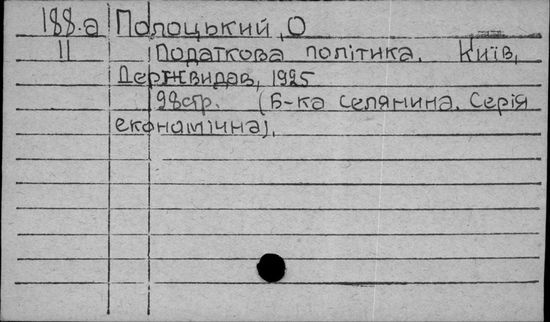 188.а Полоцький, О
11 Податкова політика. Київ,
Держвидав, 1925
98стр. (Б-ка селянина. Серія
економічна).